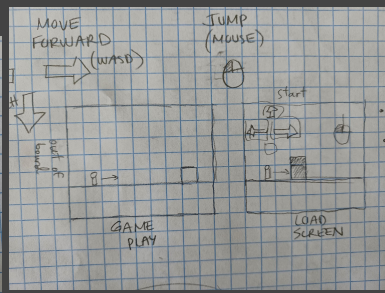 MOVE
FORWARD
(WASD)
JUMP
(MOUSE)
start
out of
bound
GAME
PLAY
LOAD
SCREEN